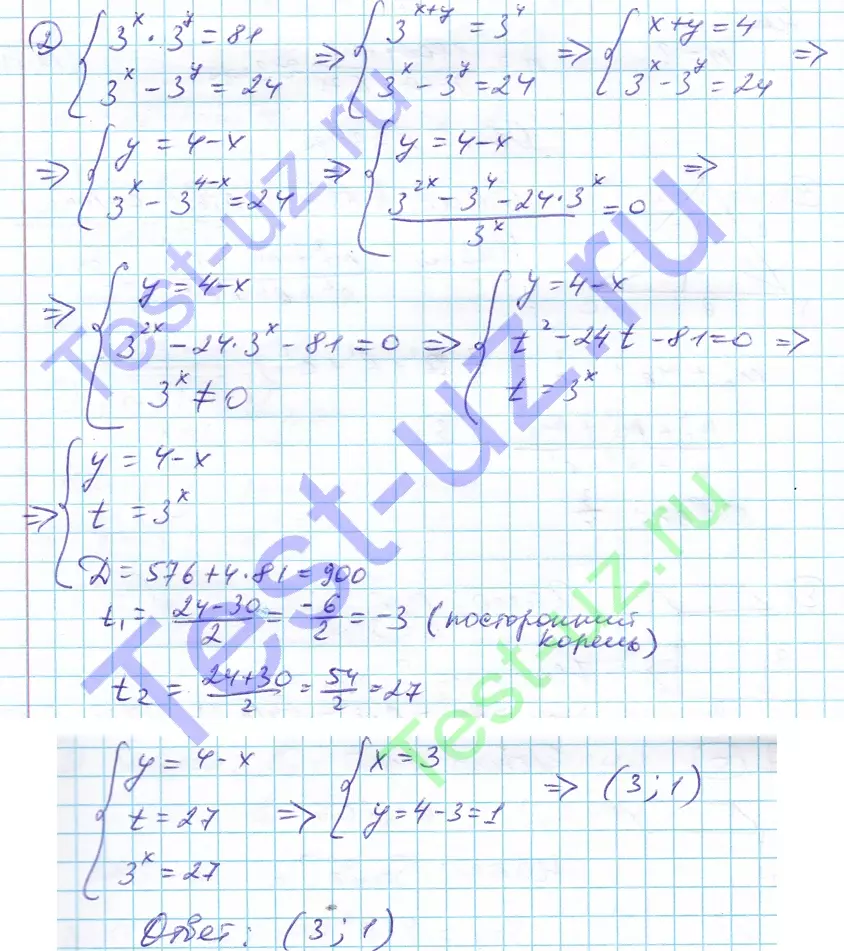 2) { 3^x · 3^y = 81 ⇒ { 3^(x+y) = 3^4 ⇒ { x+y = 4 ⇒
3^x − 3^y = 24   3^x − 3^y = 24   3^x − 3^y = 24
⇒ { y = 4−x ⇒ { y = 4−x ⇒
3^x − 3^(4−x) = 24   (3^(2x) − 3^4 − 24·3^x)/3^x = 0
⇒ { y = 4−x   { y = 4−x
3^(2x) − 24·3^x − 81 = 0 ⇒ t^2 − 24t − 81 = 0 ⇒
3^x ≠ 0   t = 3^x
⇒ { y = 4−x
t = 3^x
Д = 576 + 4·81 = 900
t₁ = (24−30)/2 = −6/2 = −3 (посторонний
корень)
t₂ = (24+30)/2 = 54/2 = 27
{ y = 4−x   { x = 3
t = 27 ⇒ y = 4−3 = 1 ⇒ (3; 1)
3^x = 27
Ответ: (3; 1)
Test-uz.ru
Test-uz.ru
Test-uz.ru